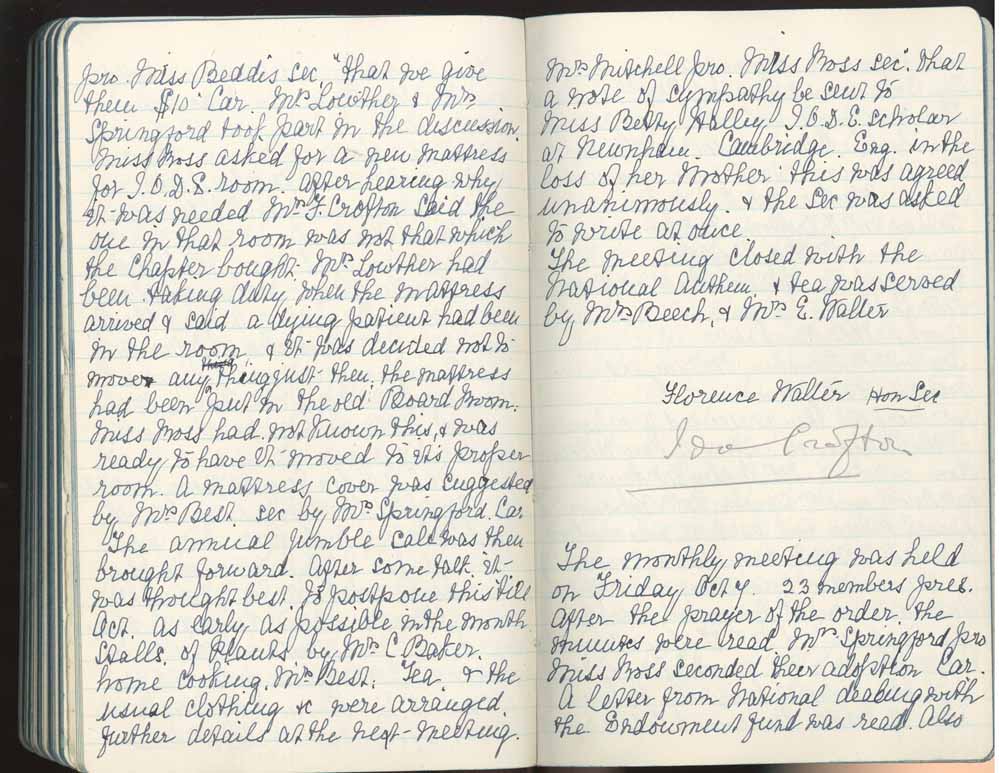 pro. Miss Beddis sec "that we give
them $10" Car. Mrs Lowther & Mrs
Springford took part in the discussion.
Miss Moss asked for a new mattress
for I.O.D.E. room. After hearing why
it was needed Mrs F. Crofton said the
one in that room was not that which
the Chapter bought. Mrs Lowther had
been taking duty when the mattress
arrived & said a dying patient had been
in the room & it was decided not to
move any thing just then, the mattress
had been put in the old Board Room.
Miss Moss had not known this, & was
ready to have it moved to its proper
room. A mattress cover was suggested
by Mrs Best. sec by Mrs Springford. Car.
The annual jumble sale was then
brought forward. After some talk it
was thought best to postpone this till
Oct. as early as possible in the month
Stalls. of Plants by Mrs C Baker.
home cooking. Mrs Best. Tea. & the
usual clothing &c were arranged.
further details at the next meeting.
Mrs Mitchell pro. Miss Moss sec. that
a note of sympathy be sent to
Miss Betty Halley I.O.D.E. scholar
at Newnham. Cambridge. Eng. in the
loss of her Mother this was agreed
unanimously. & the sec was asked
to write at once
The meeting closed with the
National Anthem, & tea was served
by Mrs Beech, & Mrs E. Walter
Florence Walter Hon Sec
Ida Crofton
The monthly meeting was held
on Friday Oct 7. 23 members pres.
After the prayer of the order. the
minutes were read. Mrs Springford pro
Miss Moss seconded their adoption Car.
A letter from National dealing with
the Endowment fund was read. Also